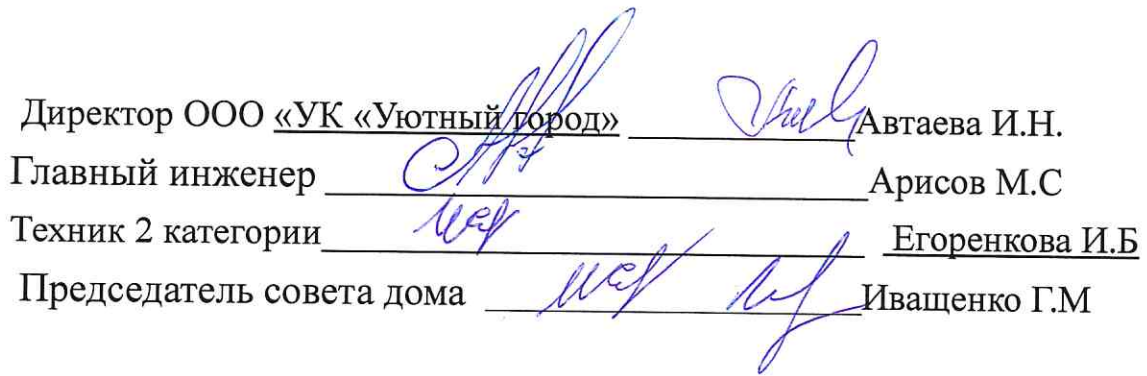 Директор ООО «УК «Уютный город» ____________ Автаева И.Н.
Главный инженер ____________ Арисов М.С
Техник 2 категории____________ Егоренкова И.Б
Председатель совета дома ____________ Иващенко Г.М